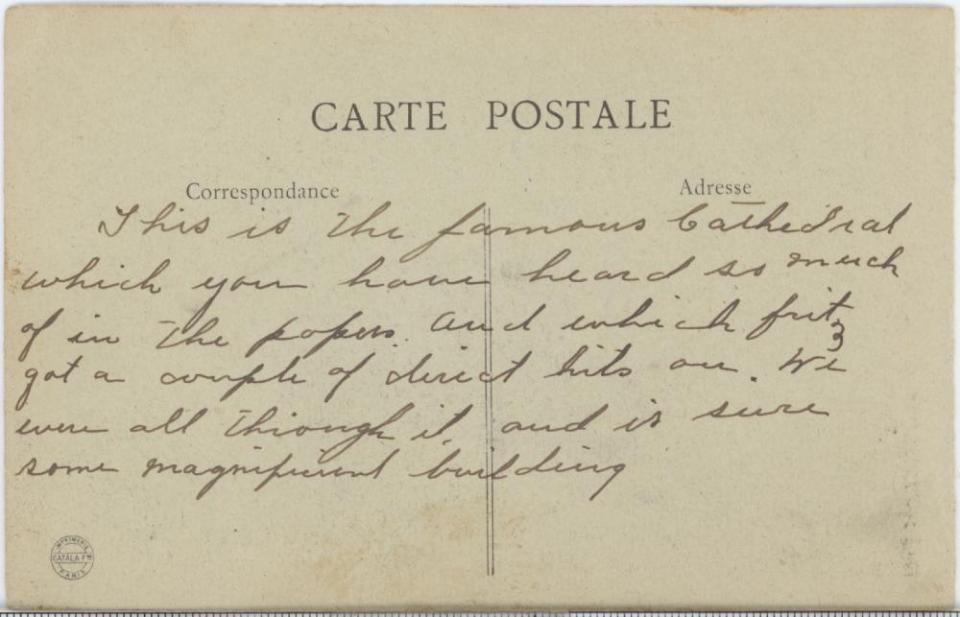 CARTE POSTALE
Correspondance
Adresse
This is the famous Cathedral
which you have heard so much
of in the papers. And which fritz
got a couple of direct hits on. We
were all through it, and is sure
some magnificent building
IMPRIMERIE
CATALA Fres
PARIS